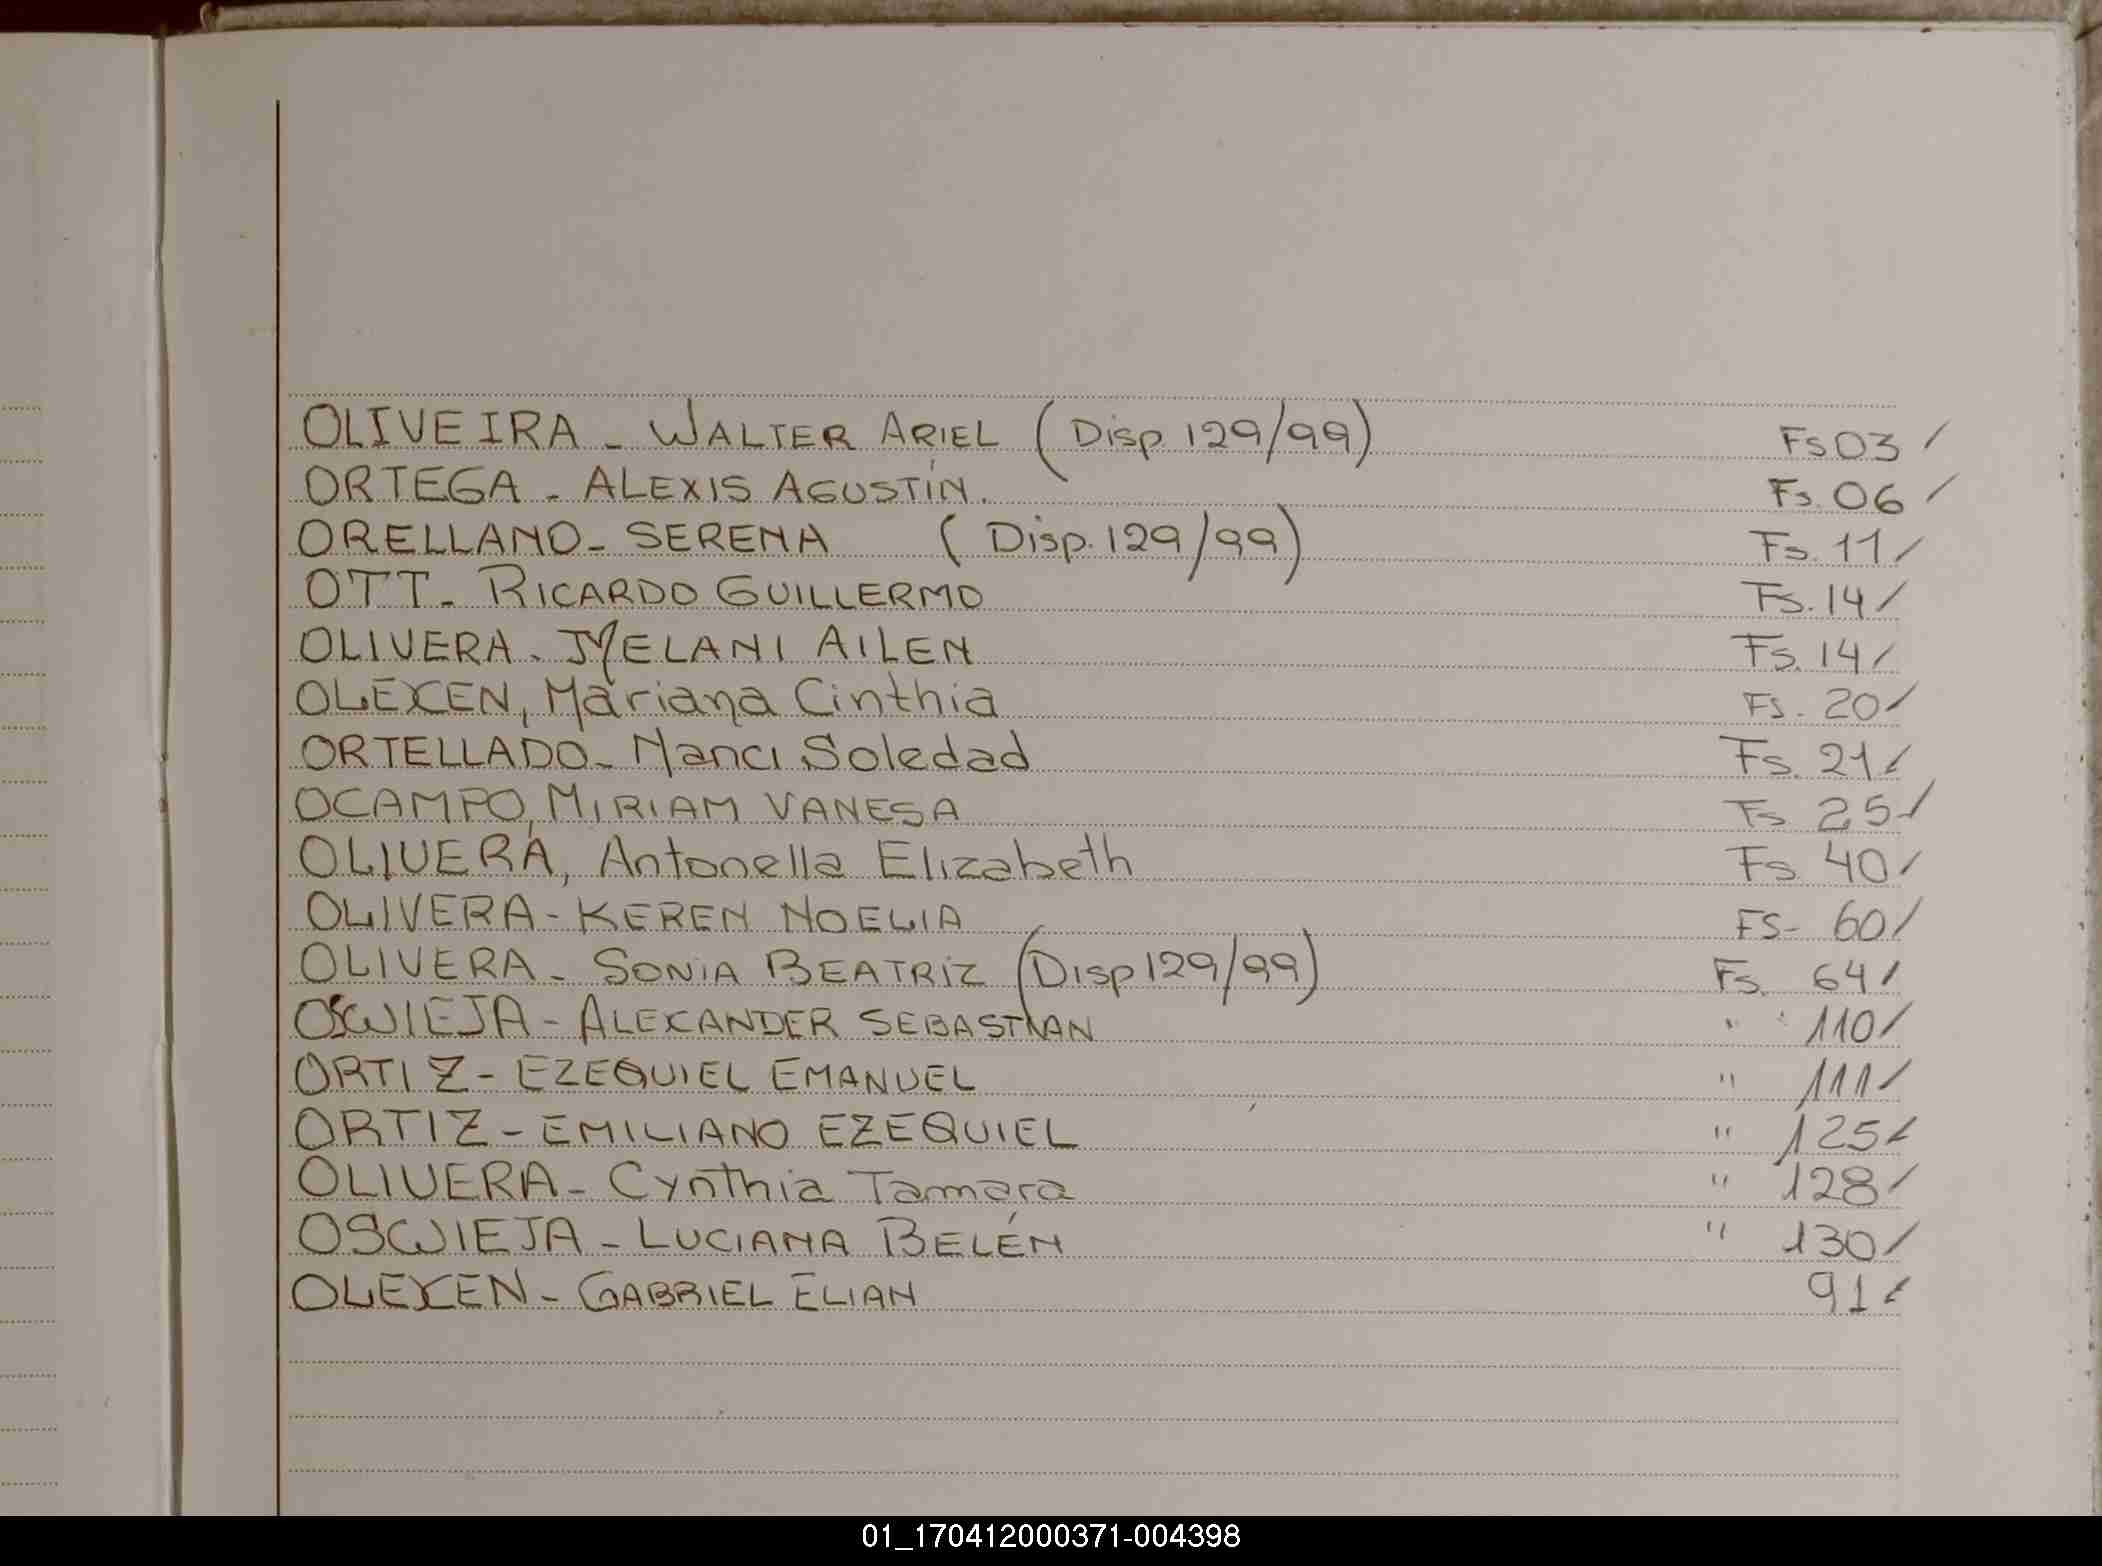 OLIVEIRA - WALTER ARIEL (Disp. 129/99) Fs 03 /
ORTEGA - ALEXIS AGUSTÍN. Fs. 06 /
ORELLANO - SERENA (Disp. 129/99) Fs. 11 /
OTT - RICARDO GUILLERMO Fs. 14 /
OLIVERA - MELANI AILEN Fs. 14 /
OLEXEN, Mariana Cinthia Fs - 20 /
ORTELLADO - Nanci Soledad Fs. 21 /
OCAMPO, MIRIAM VANESA Fs 25 /
OLIVERA, Antonella Elizabeth Fs 40 /
OLIVERA - KEREN NOELIA FS - 60 /
OLIVERA - SONIA BEATRIZ (Disp 129/99) Fs. 64 /
OSWIEJA - ALEXANDER SEBASTIAN " 110 /
ORTIZ - EZEQUIEL EMANUEL " 111 /
ORTIZ - EMILIANO EZEQUIEL " 125 /
OLIVERA - Cynthia Tamara " 128 /
OSWIEJA - LUCIANA BELÉN " 130 /
OLEXEN - GABRIEL ELIAN 91 /
01_170412000371-004398